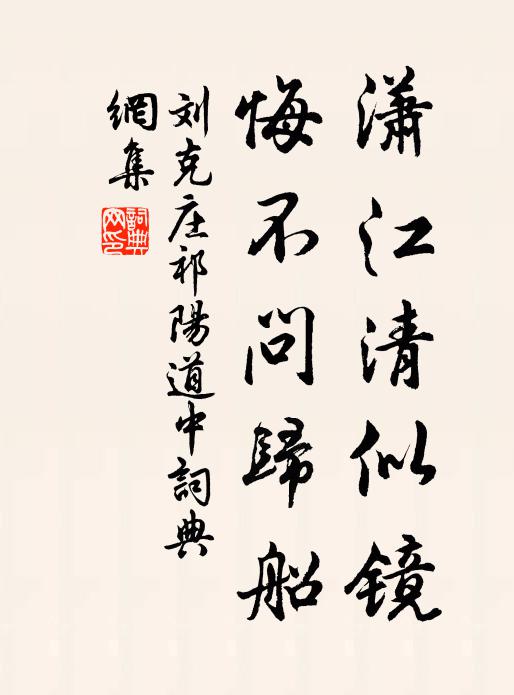 瀟江清似镜
悔不問歸船
刘克庄祁陽道中詞典
網集
詞典
网印